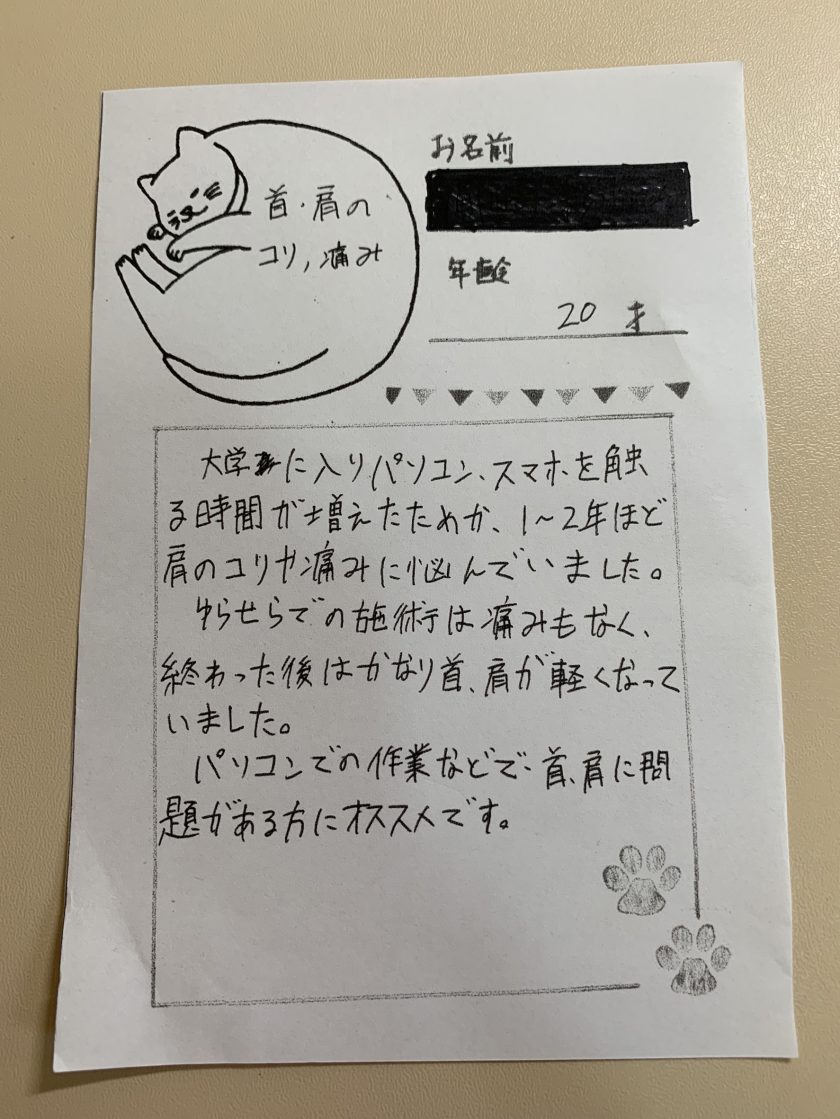 首・肩の
コリ,痛み
お名前
年齢
20 才
大学に入りパソコン、スマホを触
る時間が増えたためか、1〜2年ほど
肩のコリや痛みに悩んでいました。
ゆらせらでの施術は痛みもなく、
終わった後はかなり首、肩が軽くなって
いました。
パソコンでの作業などで首、肩に問
題がある方にオススメです。